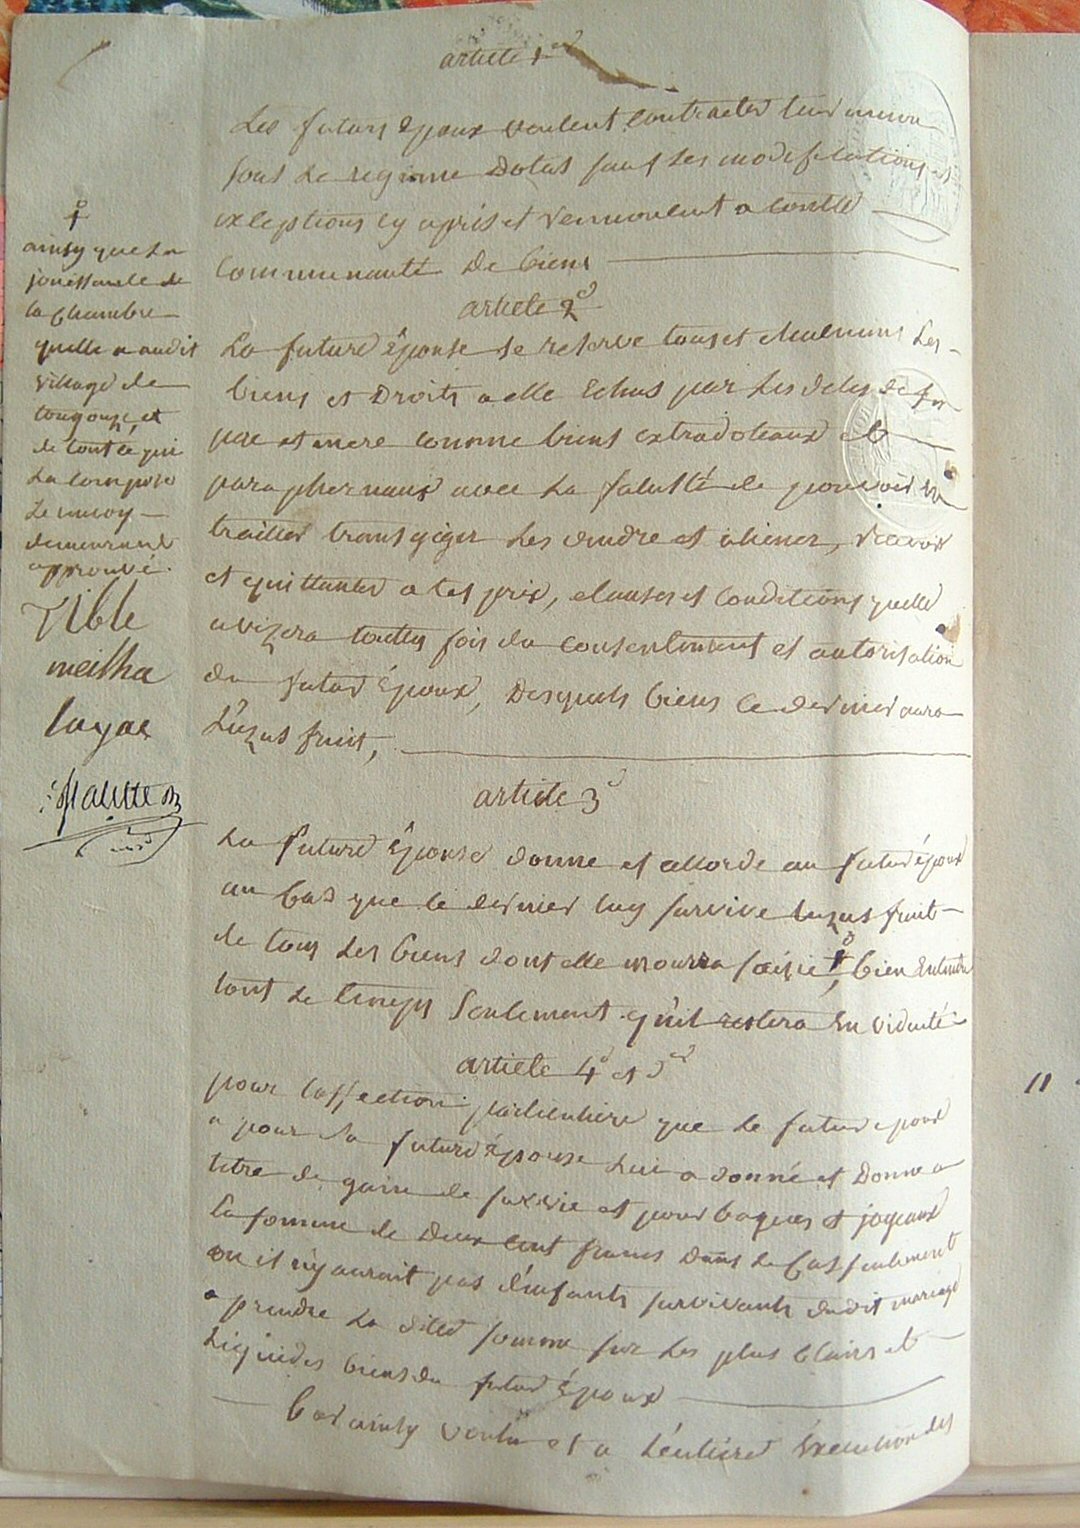 article 1er
Les futurs epoux veulent contracter leur union
sous le regime Dotal sauf les modifications et
exceptions cy après et renoncent a toutte
communauté de biens
article 2e
La future Épouse se reserve tous et chacuns les
biens et Droits a elle Echus par les deces de ses
pere et mere comme biens extradoteaux et
paraphernaux avec la faculté de pouvoir en
traitter transgiger les vendre et aliener, recevoir
et quittancer a tes prix, clauses et conditions quelle
avizera touttes fois du consentement et autorisation
du futur Époux, Desquels biens ce dernier aura
L'uzus fruit,
article 3e
La future Épouse donne et accorde au futur époux
au cas que ce dernier luy survive l'uzus fruit
de tous les biens dont elle mourra saizie, bien Entendu
tant de temps Seulement qu'il restera En viduité
article 4e et 5e
pour l'affection particuliere que le futur epoux
a pour la future Épouse lui a donné et Donne a
titre de gain de survie et pour bagues et joyaux
la somme de Deux cent francs Dans le cas seulement
ou il n'y aurait pas d'enfants survivants dudit mariage
a prendre la ditte somme sur les plus clairs et
liquides biens du futur Époux
Car ainsy voulu et a l'entiere Execution des
ainsy que la
jouissance de
la chambre
quelle a audit
village de
et
de tout ce qui
la compose
le envoy
demeurant
approuvé
Tible
meitha
layac
11